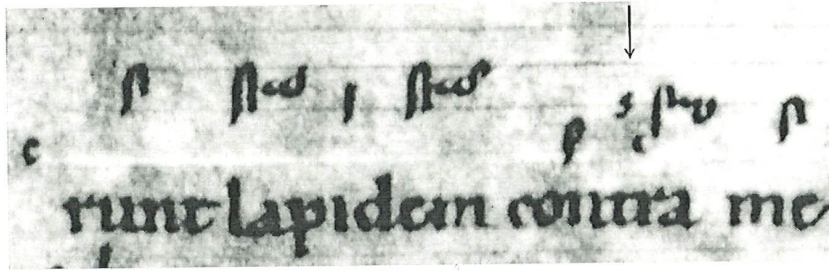 c
runt lapidem contra me